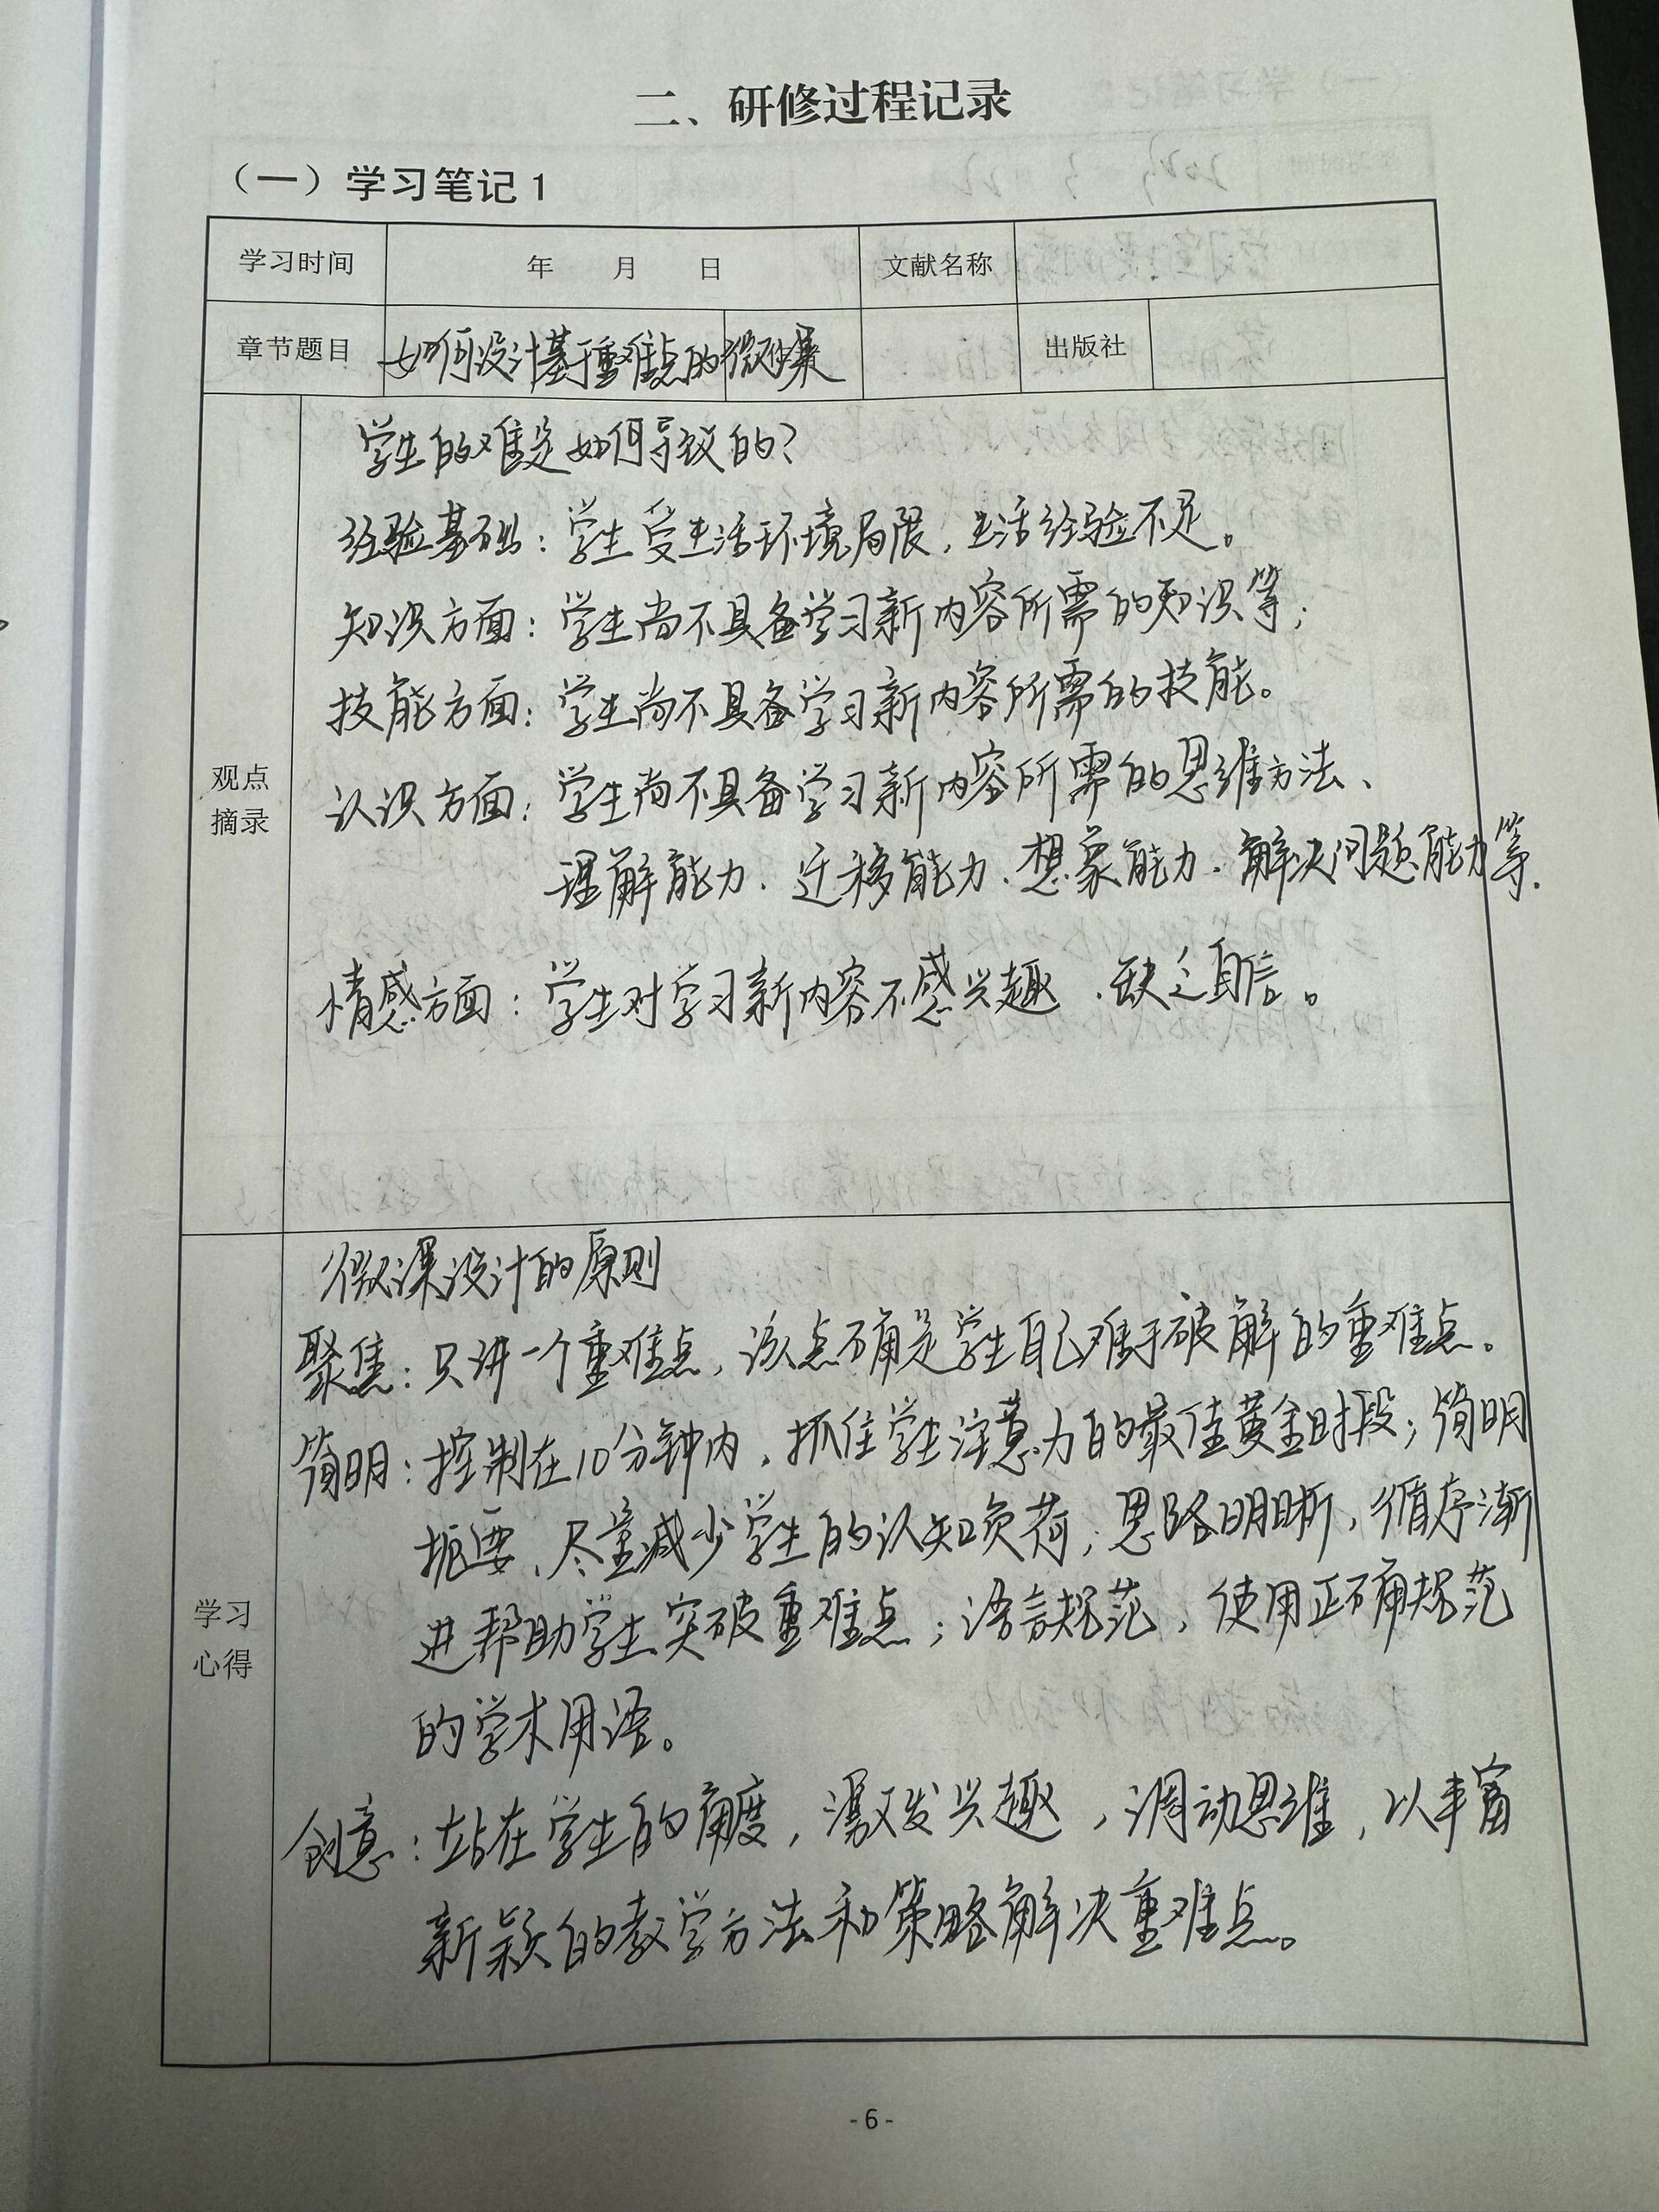 二、研修过程记录
（一）学习笔记1
学习时间 年 月 日 文献名称
章节题目 如何设计基于重难点的微课 出版社
学生的难是如何导致的?
经验基础：学生受生活环境局限，生活经验不足。
知识方面：学生尚不具备学习新内容所需的知识等；
技能方面：学生尚不具备学习新内容所需的技能。
认识方面：学生尚不具备学习新内容所需的思维方法、
理解能力、迁移能力、想象能力、解决问题能力等.
情感方面：学生对学习新内容不感兴趣、缺乏自信。
观点
摘录
微课设计的原则
聚焦：只讲一个重难点，该点确是学生自己难于破解的重难点。
简明：控制在10分钟内，抓住学生注意力的最佳黄金时段；简明
扼要、尽量减少学生的认知负荷；思路明晰，循序渐
进帮助学生突破重难点；语言规范，使用正确规范
的学术用语。
创意：站在学生的角度，激发兴趣，调动思维，以丰富
新颖的教学方法和策略解决重难点。
学习
心得
-6-